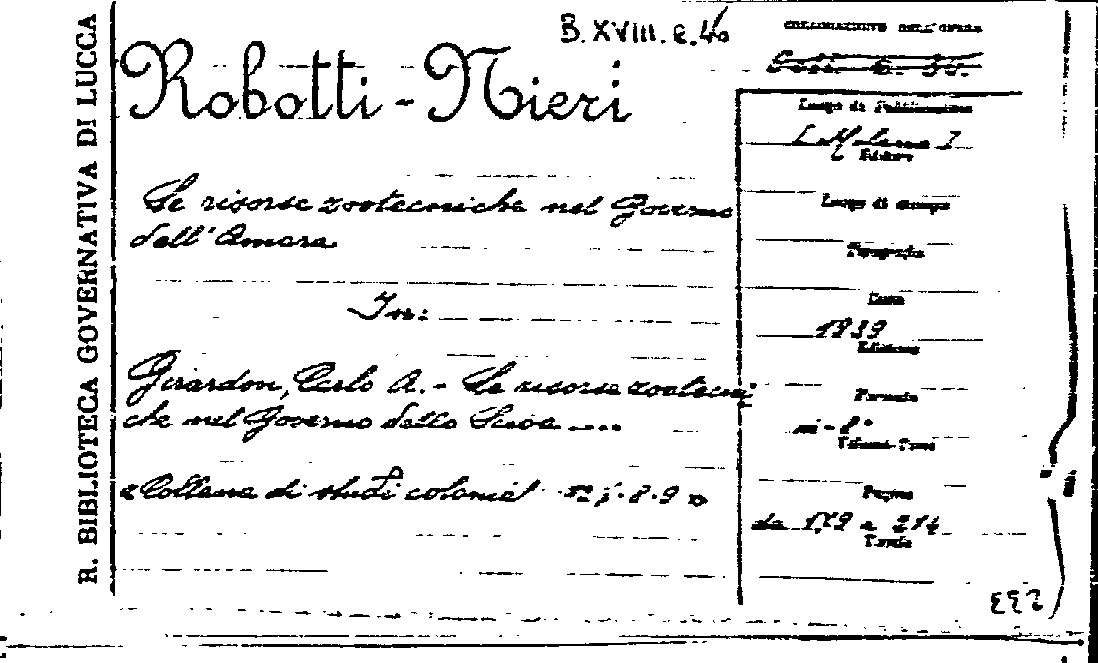 R. BIBLIOTECA GOVERNATIVA DI LUCCA
B. XVIII. e. 40
Robotti - Nieri
Le risorse zootecniche nel Governo
dell'Amara
In:
Girardon, Carlo A. - Le risorse zootecni
che nel Governo dello Scioa ....
"Collana di studi coloniali 7-8-9"
COLLOCAZIONE DELL'OPERA
Luogo di Pubblicazione
Editore
Luogo di stampa
Tipografia
Data
1939
Edizione
Formato
in-8°
Volume-Tomi
Pagine
da 179 a 214
Tavole